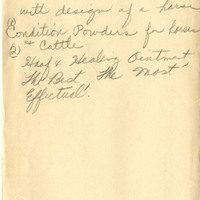 with design of a horse
(1)
Condition Powders for horses
(2) " Cattle
Hoof & Healing Ointment
The Best The Most
Effectual!